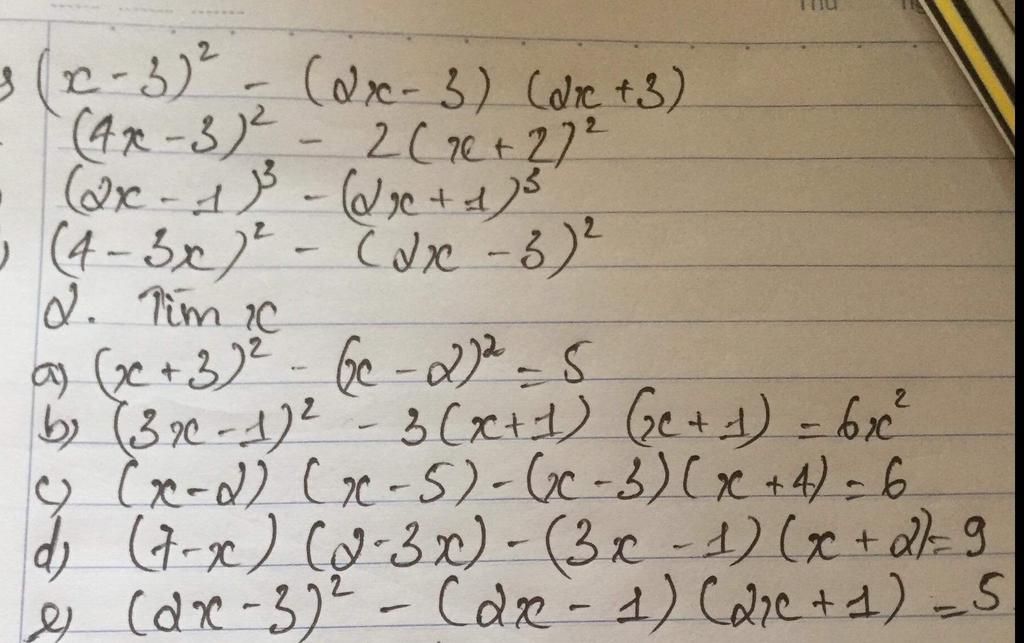 (x-3)² - (2x-3) (2x+3)
(4x-3)² - 2(x+2)²
(2x-1)³ - (2x+1)³
(4-3x)² - (2x-3)²
2. Tìm x
a) (x+3)² - (x-2)² = 5
b) (3x-1)² - 3(x+1) (x+1) = 6x²
c) (x-2) (x-5) - (x-3)(x+4) = 6
d) (7-x) (2-3x) - (3x-1)(x+2) = 9
e) (2x-3)² - (2x-1)(2x+1) = 5